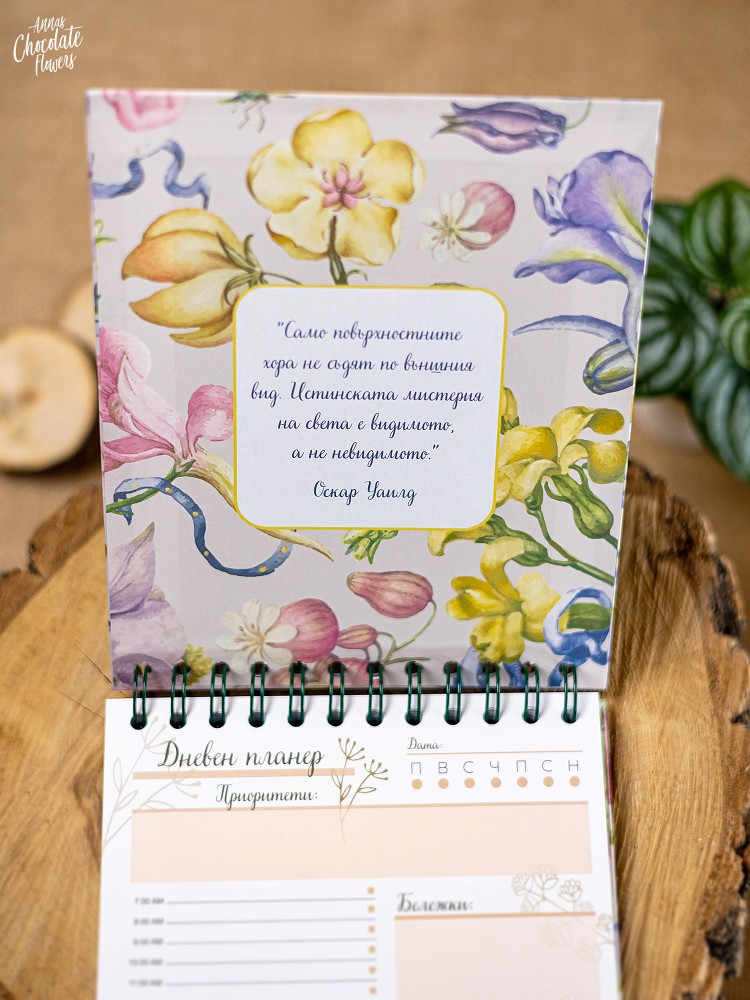 Annas
Chocolate
Flowers
"Само повърхностните
хора не съдят по външния
вид. Истинската мистерия
на света е видимото,
а не невидимото."
Оскар Уайлд
Дневен планер
Дата:
П В С Ч П С Н
Приоритети:
7:00 AM
8:00 AM
9:00 AM
10:00 AM
11:00 AM
Бележки: